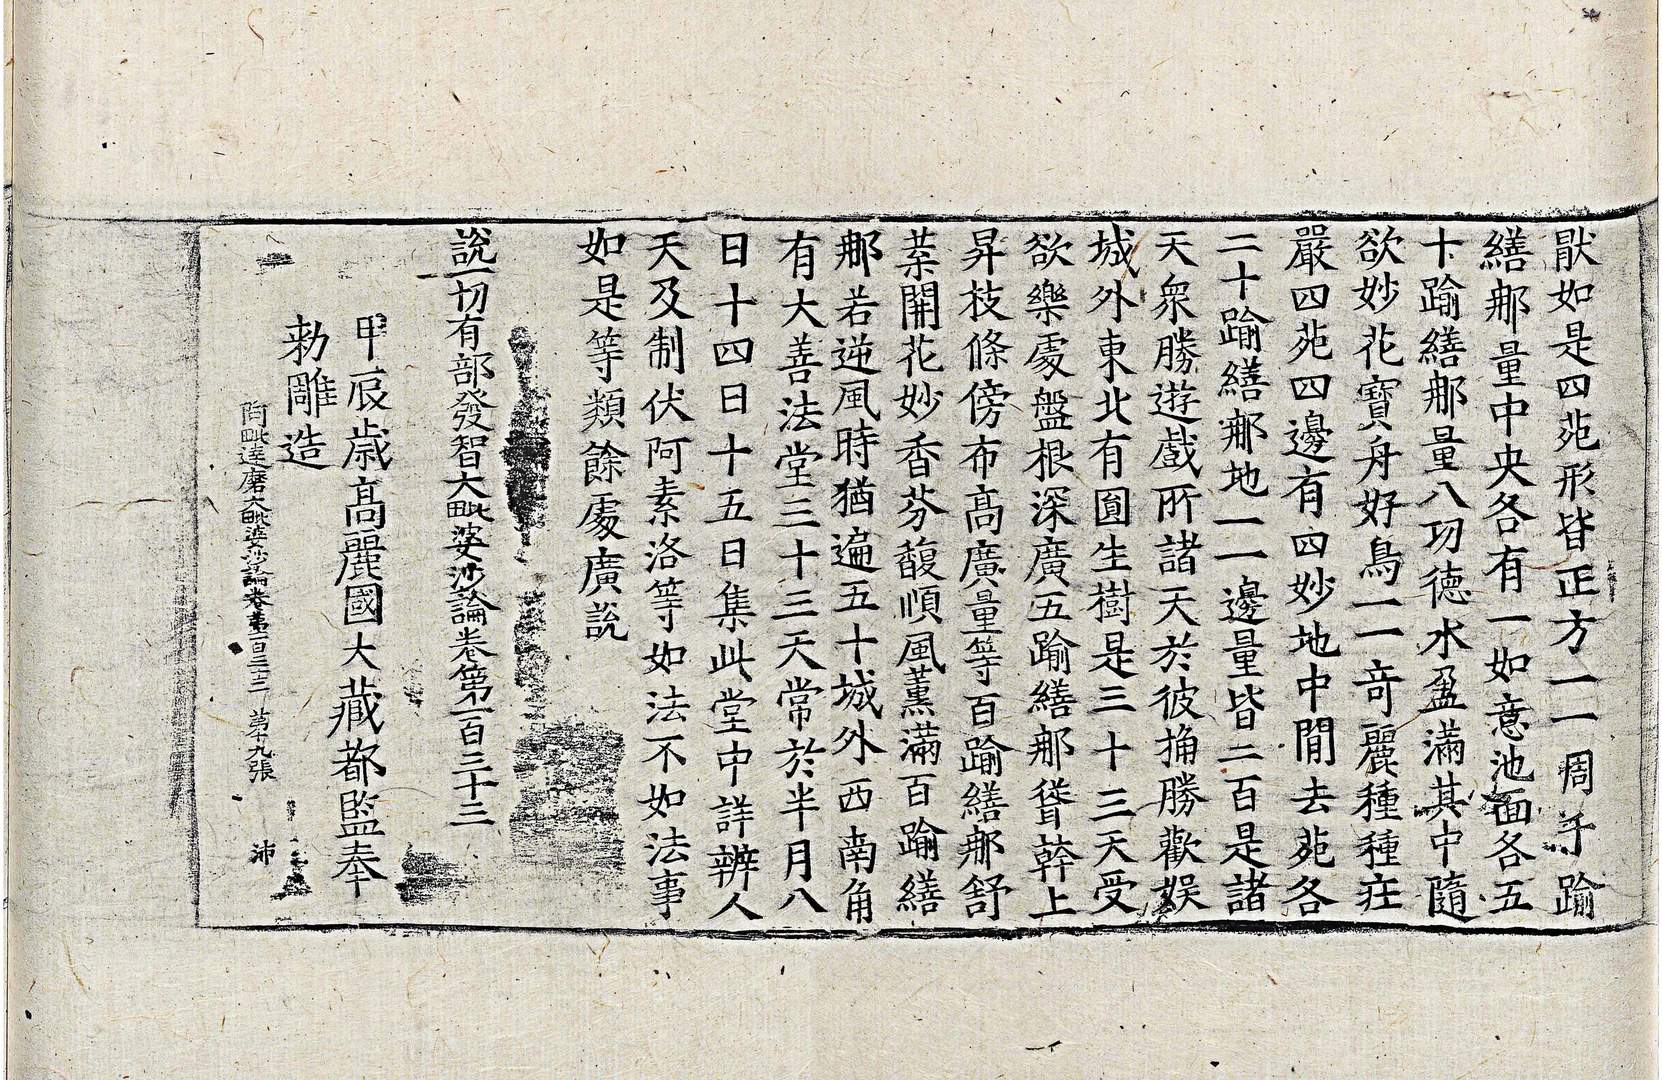 猒如是四苑形皆正方一一周千踰
繕那量中央各有一如意池面各五
十踰繕那量八功德水盈滿其中隨
欲妙花寶舟好鳥一一竒麗種種莊
嚴四苑四邊有四妙地中間去苑各
二十踰繕那地一一邊量皆二百是諸
天衆勝遊戲所諸天於彼捔勝歡娱
城外東北有圓生樹是三十三天受
欲樂處盤根深廣五踰繕那聳幹上
昇枝條傍布高廣量等百踰繕那舒
葉開花妙香芬馥順風薰滿百踰繕
那若逆風時猶遍五十城外西南角
有大善法堂三十三天常於半月八
日十四日十五日集此堂中詳辦人
天及制伏阿素洛等如法不如法事
如是等類餘處廣說
說一切有部發智大毗婆沙論卷第一百三十三
甲辰歲高麗國大藏都監奉
勅雕造
阿毗達磨大毗婆沙論卷第一百三十三 第十九張 沛